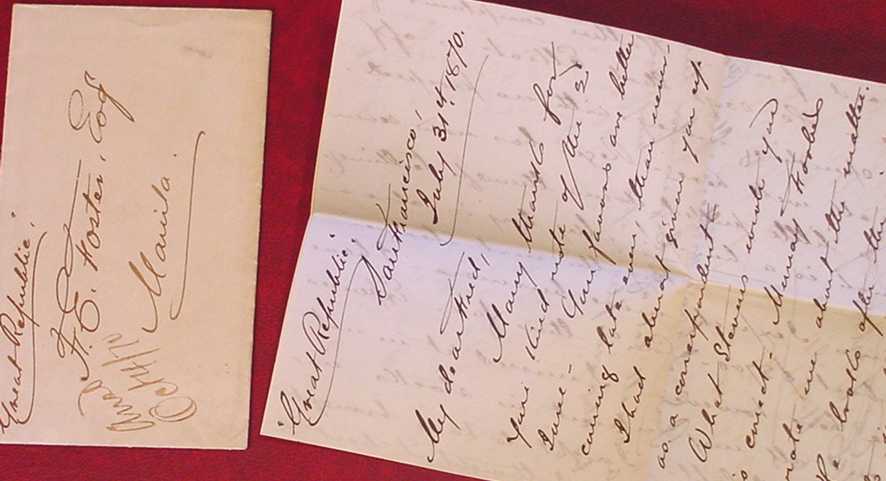 "Great Republic."
F. E. Foster, Esq
Manila.
Oct 4/70
"Great Republic,"
San Francisco,
July 31st, 1870.
My dear Fred,
Many thanks for
your kind note of the 2d
June - Your favors are better
coming late even, than never -
I had almost given you up
as a correspondent -
What Stevens wrote you
is correct - Murray Forbes
wrote me about the matter.
He looks after the